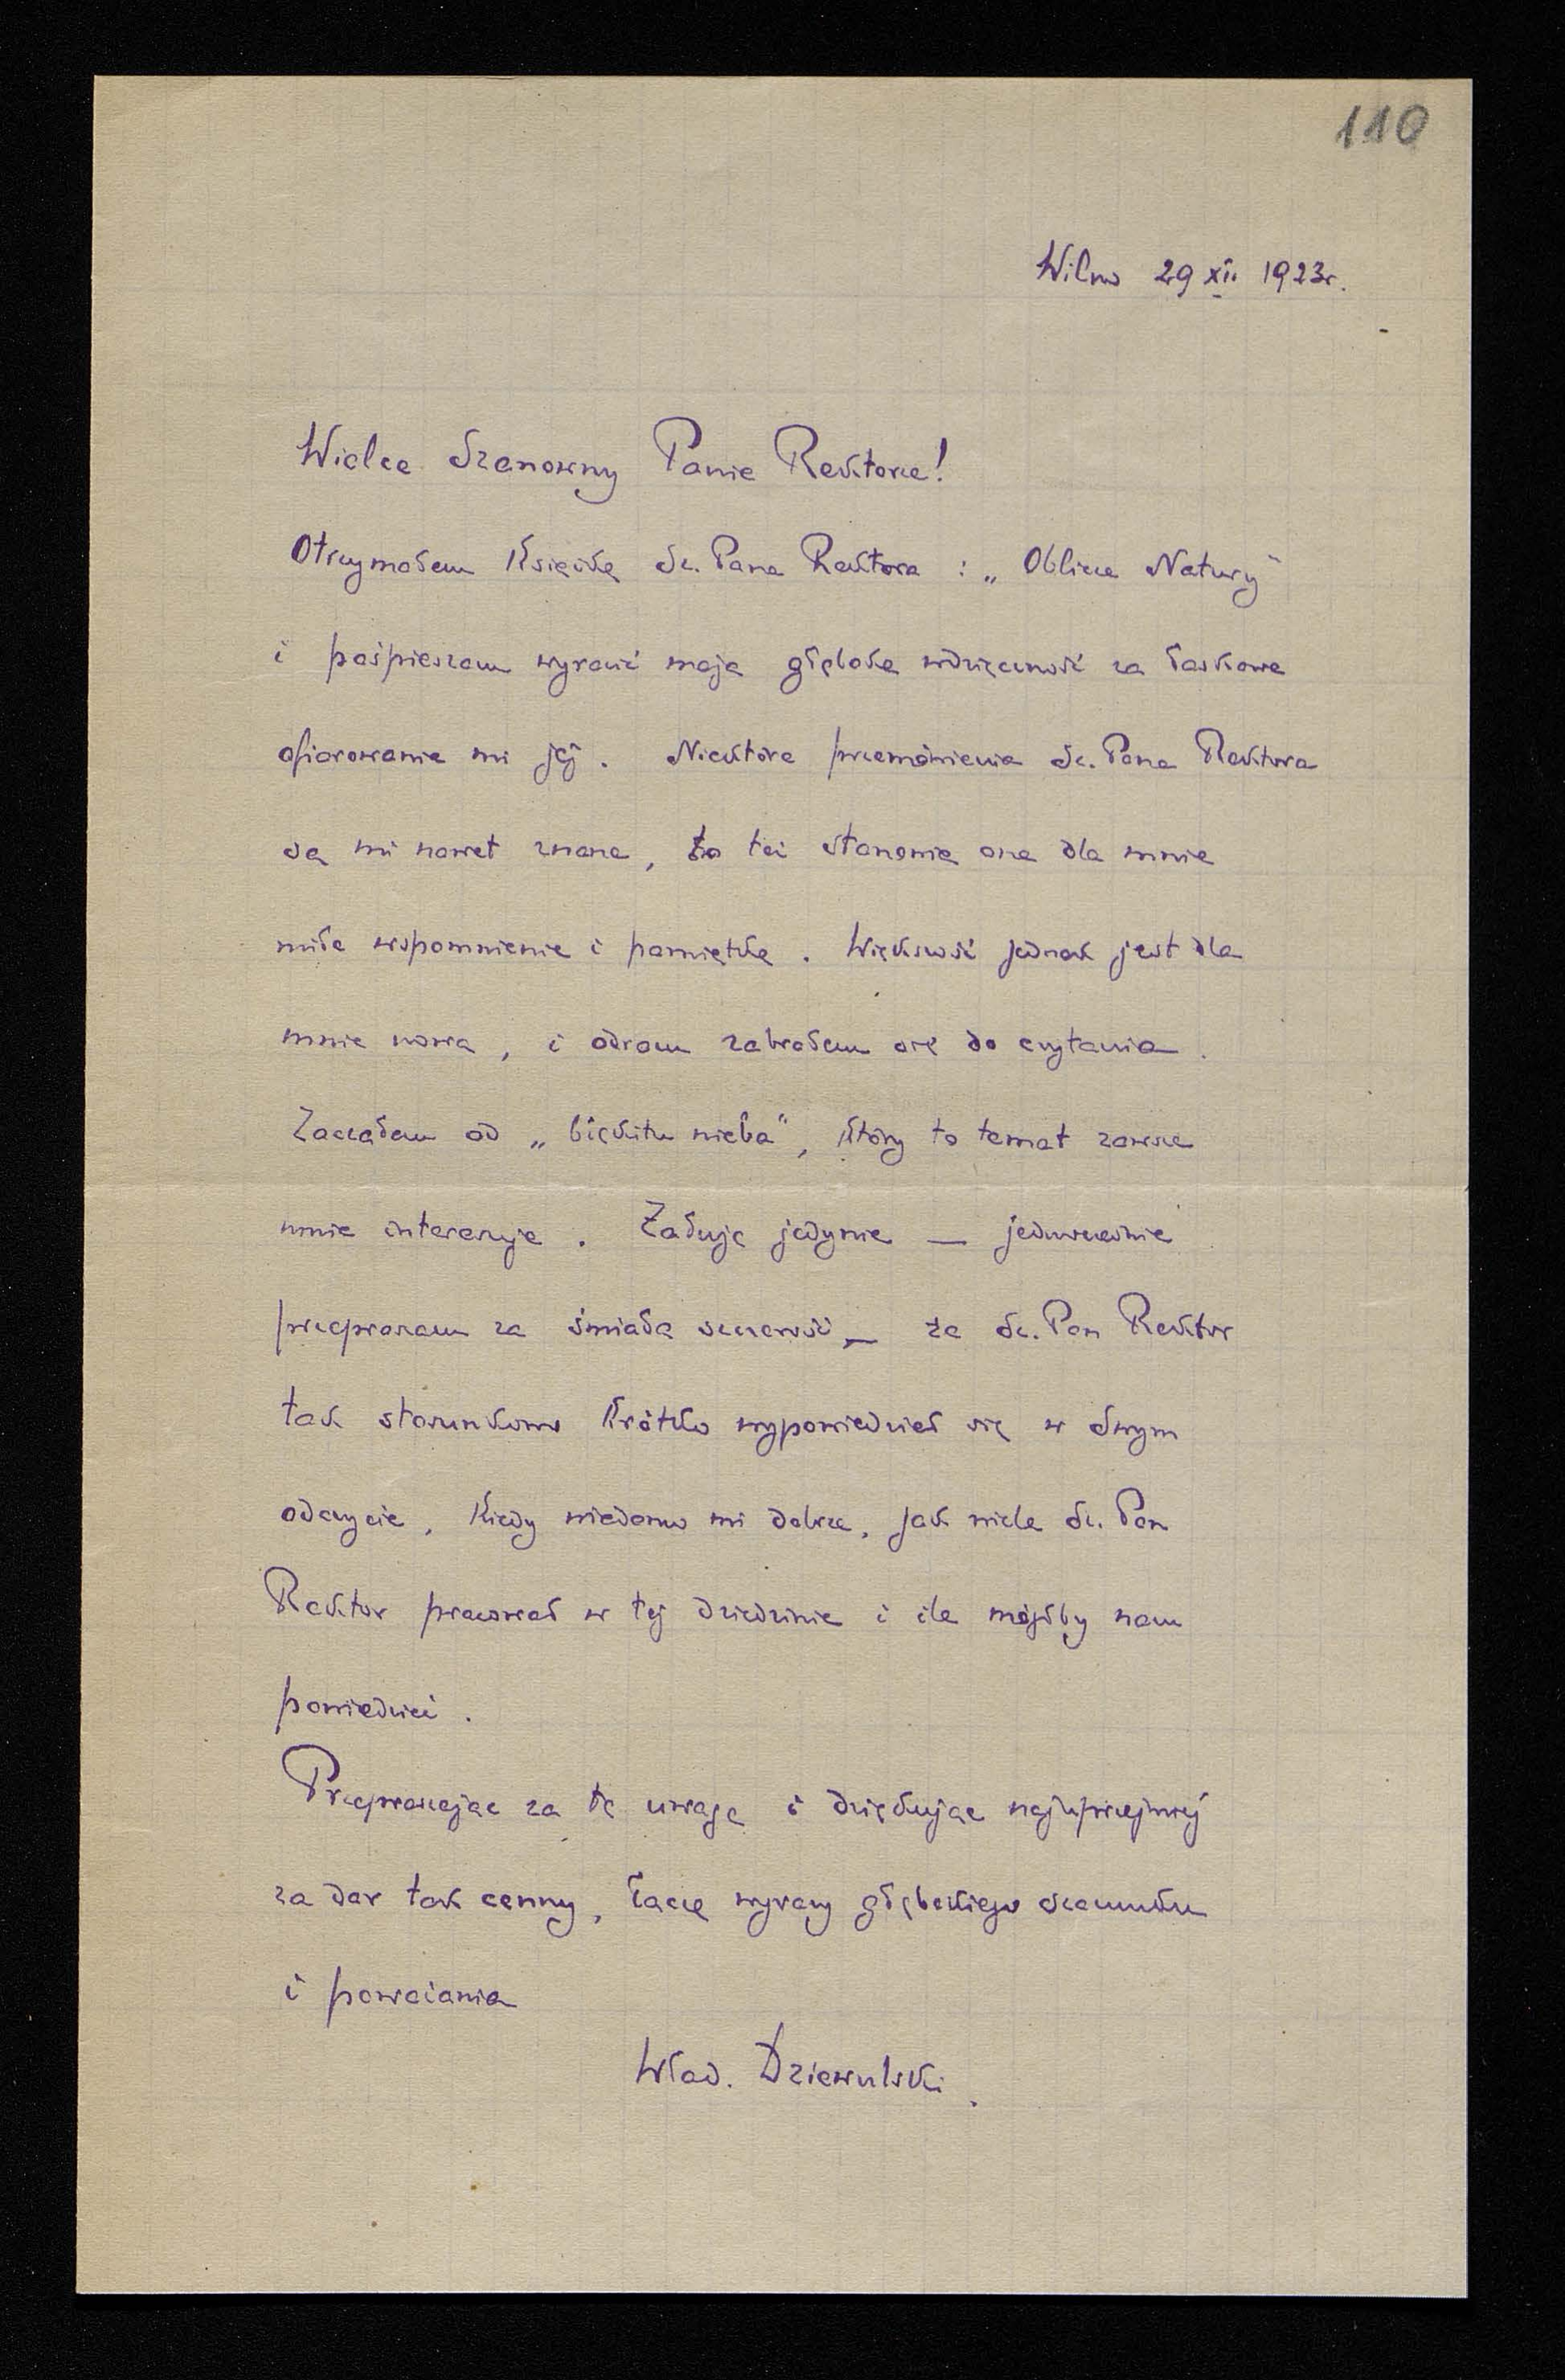 110
Wilno 29 XII 1923r.
Wielce Szanowny Panie Rektorze!
Otrzymałem książkę Sz. Pana Rektora : „Oblicze Natury"
i pośpieszam wyrazić moją głęboką wdzięczność za łaskawe
ofiarowanie mi jej. Niektóre przemówienia Sz. Pana Rektora
są mi nawet znane, to też stanowią one dla mnie
miłe wspomnienie i pamiątkę. Większość jednak jest dla
mnie nowa, i odrazu zabrałem się do czytania.
Zacząłem od „błękitu nieba", który to temat zawsze
mnie interesuje. Żałuję jedynie — jednocześnie
przepraszam za śmiałą szczerość — że Sz. Pan Rektor
tak stosunkowo krótko wypowiedział się w swym
odczycie, kiedy wiadomo mi dobrze, jak wiele Sz. Pan
Rektor pracował w tej dziedzinie i ile mógłby nam
powiedzieć.
Przepraszając za tę uwagę i dziękując najuprzejmiej
za dar tak cenny, łączę wyrazy głębokiego szacunku
i poważania
Wład. Dziewulski.